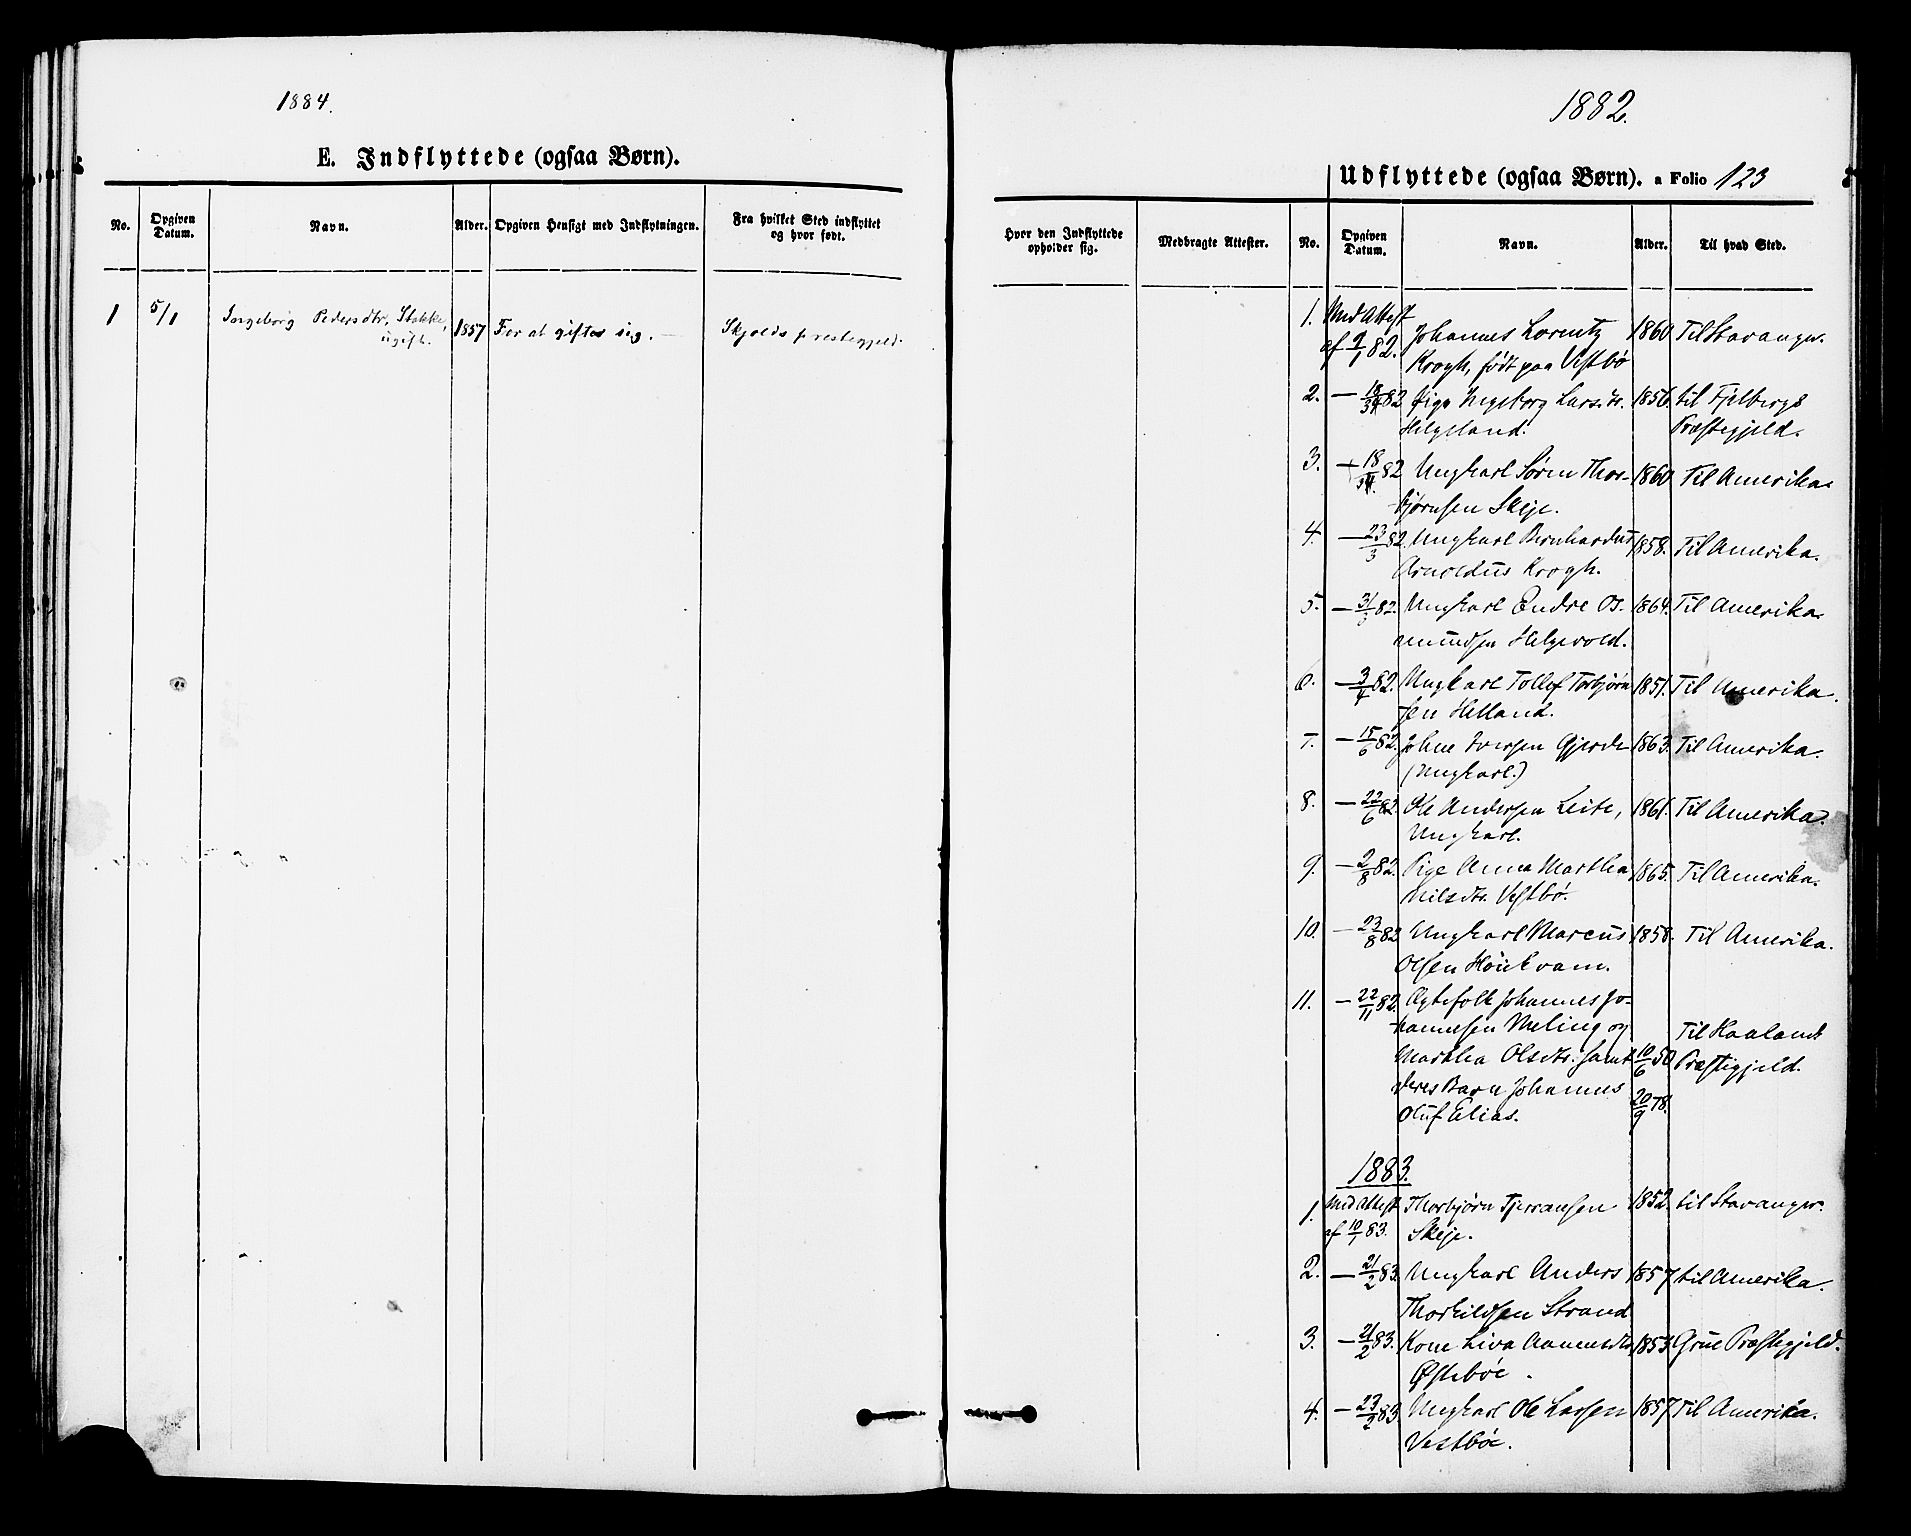 1884.
E. Indflyttede (ogsaa Børn).
No. Opgiven Datum. Navn. Alder. Opgiven Hensigt med Indflytningen. Fra hvilket Sted indflyttet og hvor født.
1 5/1 Ingeborg Pedersdtr. Stakke, 1857 For at giftes sig. — Skjolds prestegjeld.
ugift.
1882.
Udflyttede (ogsaa Børn). a Folio 123
Hvor den Indflyttede opholder sig. Medbragte Attester. No. Opgiven Datum. Navn. Alder. Til hvad Sted.
1. Med Attest
af 9/1 82. Johannes Lorentz 1860 Til Stavanger.
Krogh, født paa Vestbø
2. — 18/3 82 Pige Ingeborg Larsdtr. 1856. til Fjelbergs
Helgeland. Præstegjeld.
3. — 18/4 82 Ungkarl Søren Thor- 1860 Til Amerika.
bjørnsen Skeje.
4. — 23/3 82 Ungkarl Bernhardus 1858. Til Amerika.
Arnoldus Krogh.
5. — 31/3 82. Ungkarl Endre Os- 1864. Til Amerika
mundsen Helgevold.
6. — 3/4 82. Ungkarl Tollef Torbjørn 1851. Til Amerika.
sen Helland.
7. — 15/6 82. Johne Iversen Gjerde 1863. Til Amerika.
(Ungkarl.)
8. — 22/6 82. Ole Andersen Leite, 1861. Til Amerika.
Ungkarl.
9. — 2/8 82. Pige Anna Martha 1865. Til Amerika.
Nilsdtr. Vestbø.
10. — 23/8 82 Ungkarl Marcus 1858. Til Amerika.
Olsen Høiekvam.
11. — 22/11 82. Ægtefolk Johannes Jo-
hannesen Meling og Til Haalands
Martha Olsdtr. samt 10/6 50 Præstegjeld.
deres Barn Johannes
Oluf Elias. 20/9 78.
1883.
1. Med Attest Thorbjørn Tjerransen 1852. til Stavanger.
af 10/1 83. Skeje.
2. — 21/2 83. Ungkarl Anders 1857 til Amerika.
Thorkildsen Strand
3. — 21/2 83. Kone Liva Aanensdtr. 1853 Grue Præstegjeld.
Østebøe.
4. — 23/2 83 Ungkarl Ole Larsen 1857 Til Amerika.
Vestbøe.